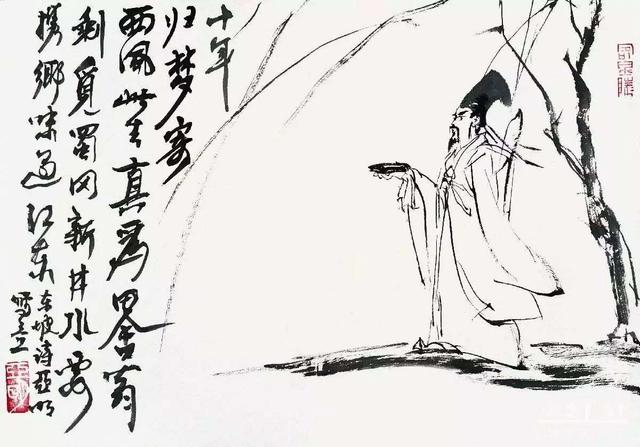 十年
归梦寄
西风此去真為田舍翁
剩覓蜀冈新井水要
携鄉味过江东
东坡诗亚明